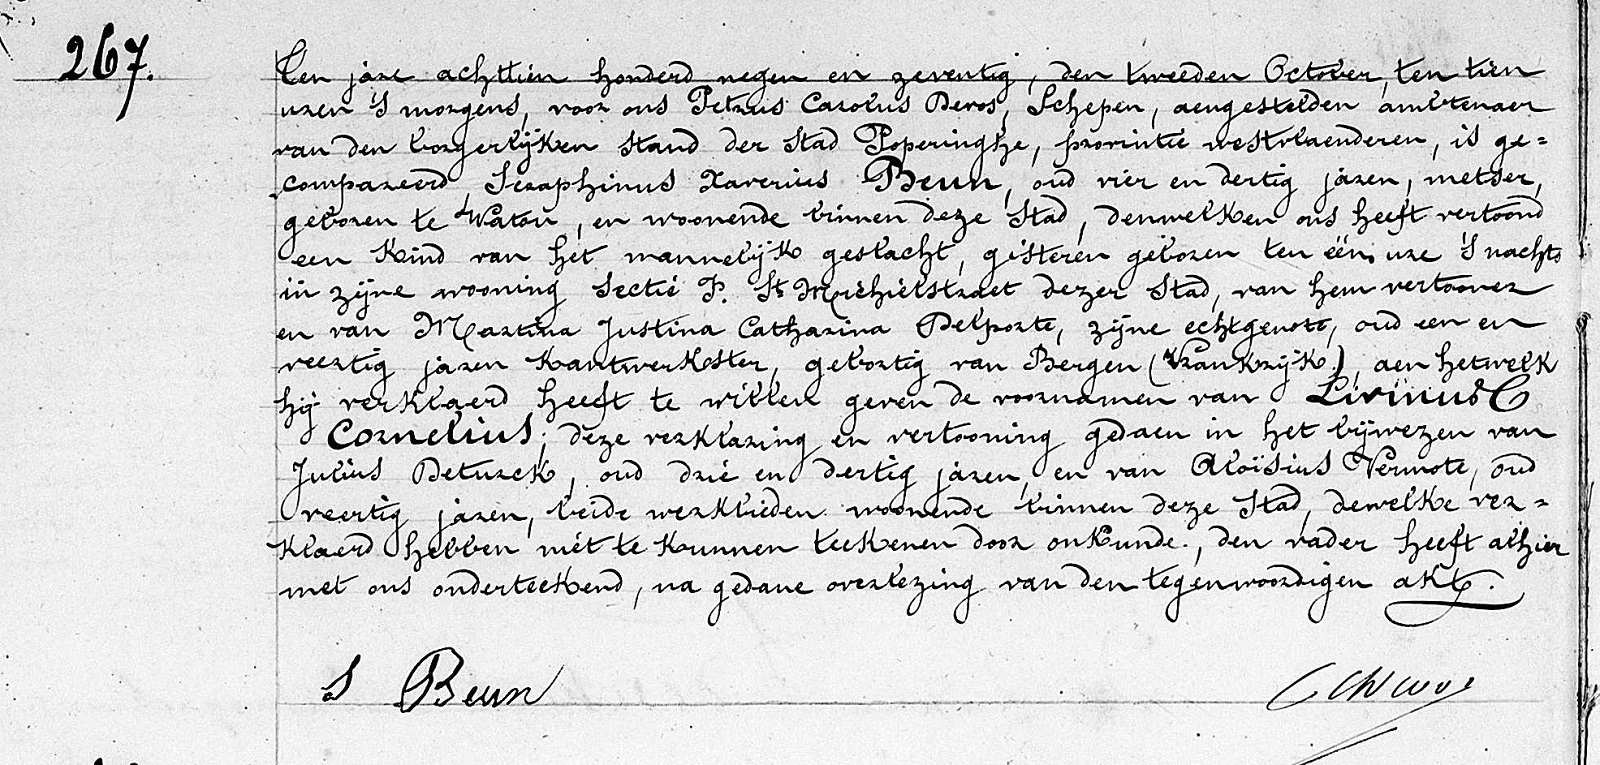 267.
Ten jare achttien honderd negen en zeventig, den tweeden October, ten tien
uren 's morgens, voor ons Petrus Carolus Devos, Schepen, aengestelden ambtenaer
van den borgerlijken stand der Stad Poperinghe, provintie westvlaenderen, is ge=
compareerd Seraphinus Xaverius Beun, oud vier en dertig jaren, metser,
geboren te Watou, en woonende binnen deze Stad, denwelken ons heeft vertoond
een Kind van het mannelijk geslacht, gisteren geboren ten één ure 's nachts
in zijne wooning Sectie P. St Michielstraet dezer Stad, van hem vertooner
en van Martina Justina Catharina Delporte, zijne echtgenote, oud een en
veertig jaren Kantwerkster, geboortig van Bergen (Vrankrijk), aen hetwelk
hij verklaerd heeft te willen geven de voornamen van Livinus
Cornelius; deze verklaring en vertooning gedaen in het bijwezen van
Julius Deturck, oud drie en dertig jaren, en van Aloïsius Vermote, oud
veertig jaren, beide werklieden woonende binnen deze Stad, dewelke ver=
klaerd hebben niet te kunnen teekenen door onkunde., den vader heeft alhier
met ons onderteekend, na gedane overlezing van den tegenwoordigen akt.
S Beun